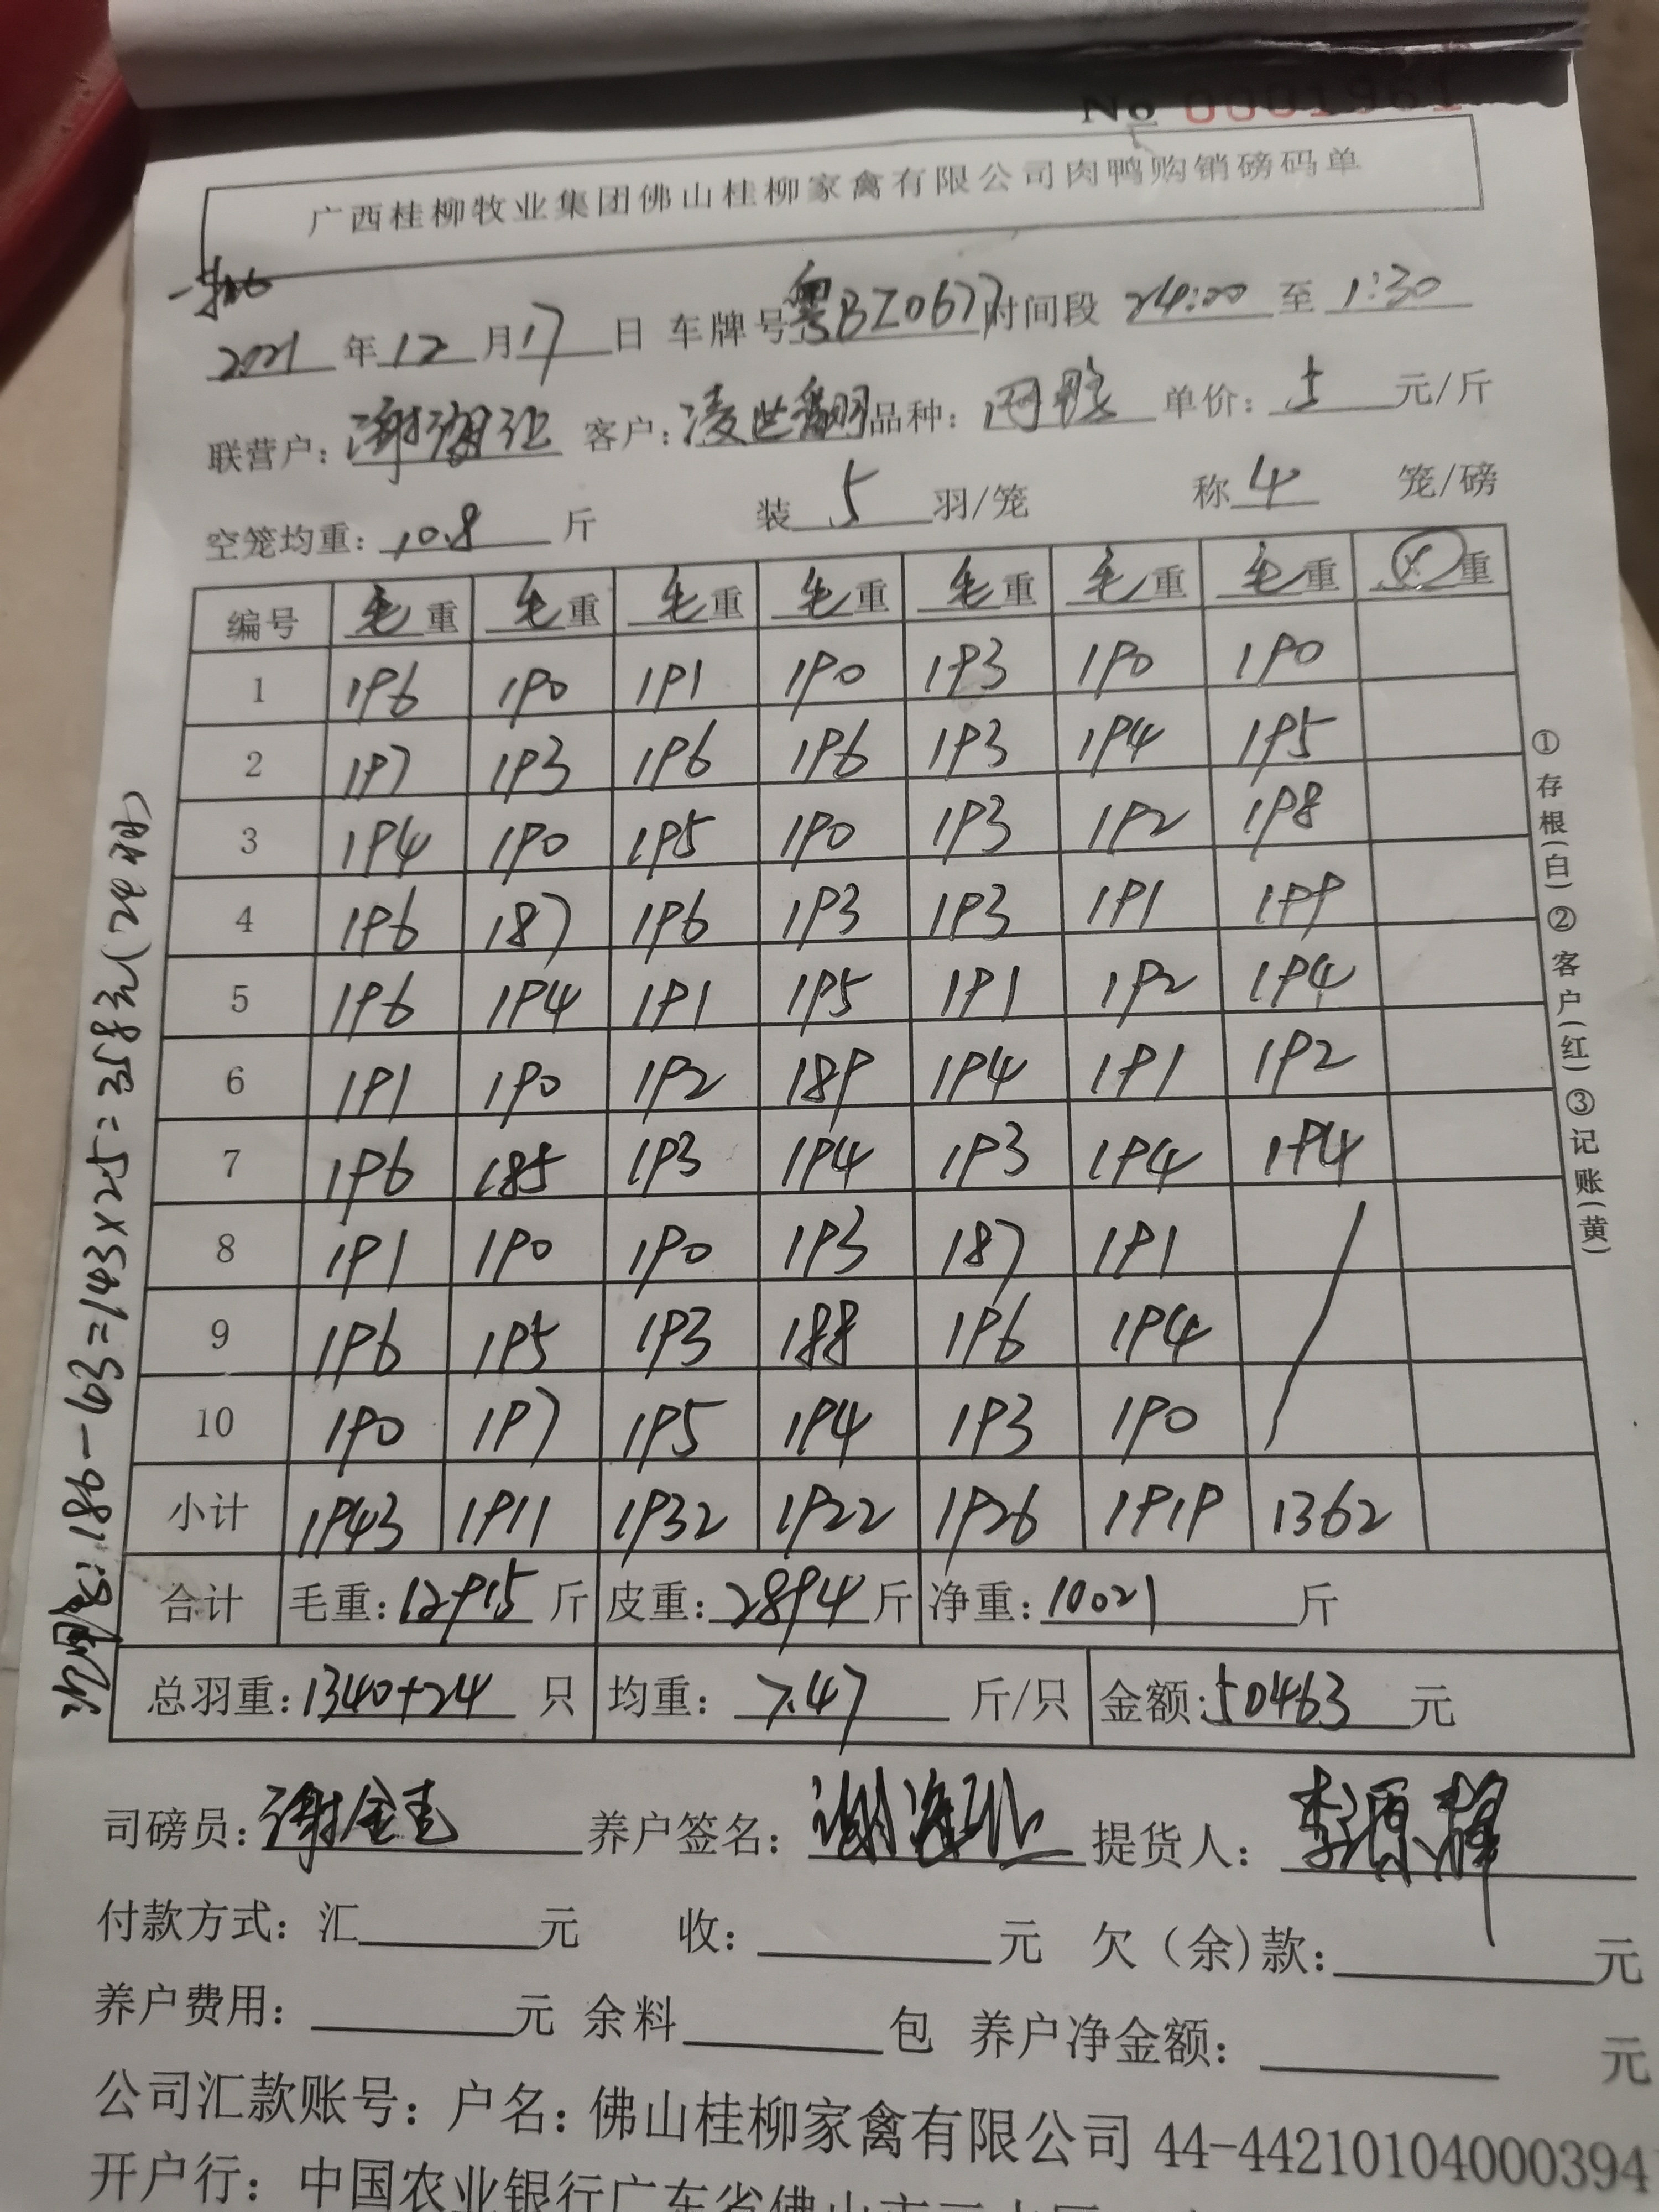 No 0001981
广西桂柳牧业集团佛山桂柳家禽有限公司肉鸭购销磅码单
2021年12月17日 车牌号粤BZ0677时间段24:00至1:30
联营户: 谢 客户: 凌世 品种: 单价: 5元/斤
空笼均重: 10.8斤 装5羽/笼 称4笼/磅
编号 毛重 毛重 毛重 毛重 毛重 毛重 毛重 重
1 196 190 191 190 193 190 190
2 197 193 196 196 193 194 195
3 194 190 195 190 193 192 198
4 196 187 196 193 193 191 199
5 196 194 191 195 191 192 194
6 191 190 192 189 194 191 192
7 196 185 193 194 193 194 194
8 191 190 190 193 187 191
9 196 195 193 188 196 194
10 190 197 195 194 193 190
小计 1943 1911 1932 1922 1926 1919 1362
合计 毛重: 12915斤 皮重: 2894斤 净重: 10021斤
总羽重: 1340+24只 均重: 7.47斤/只 金额: 50463元
司磅员: 谢金 养户签名: 谢 提货人: 李源辉
付款方式: 汇 元 收: 元 欠(余)款: 元
养户费用: 元 余料 包 养户净金额: 元
公司汇款账号: 户名: 佛山桂柳家禽有限公司 44-44210104000394
开户行: 中国农业银行广东省佛山市三水区
①存根(白)②客户(红)③记账(黄)
186-43=143×2.5=358元(24只)